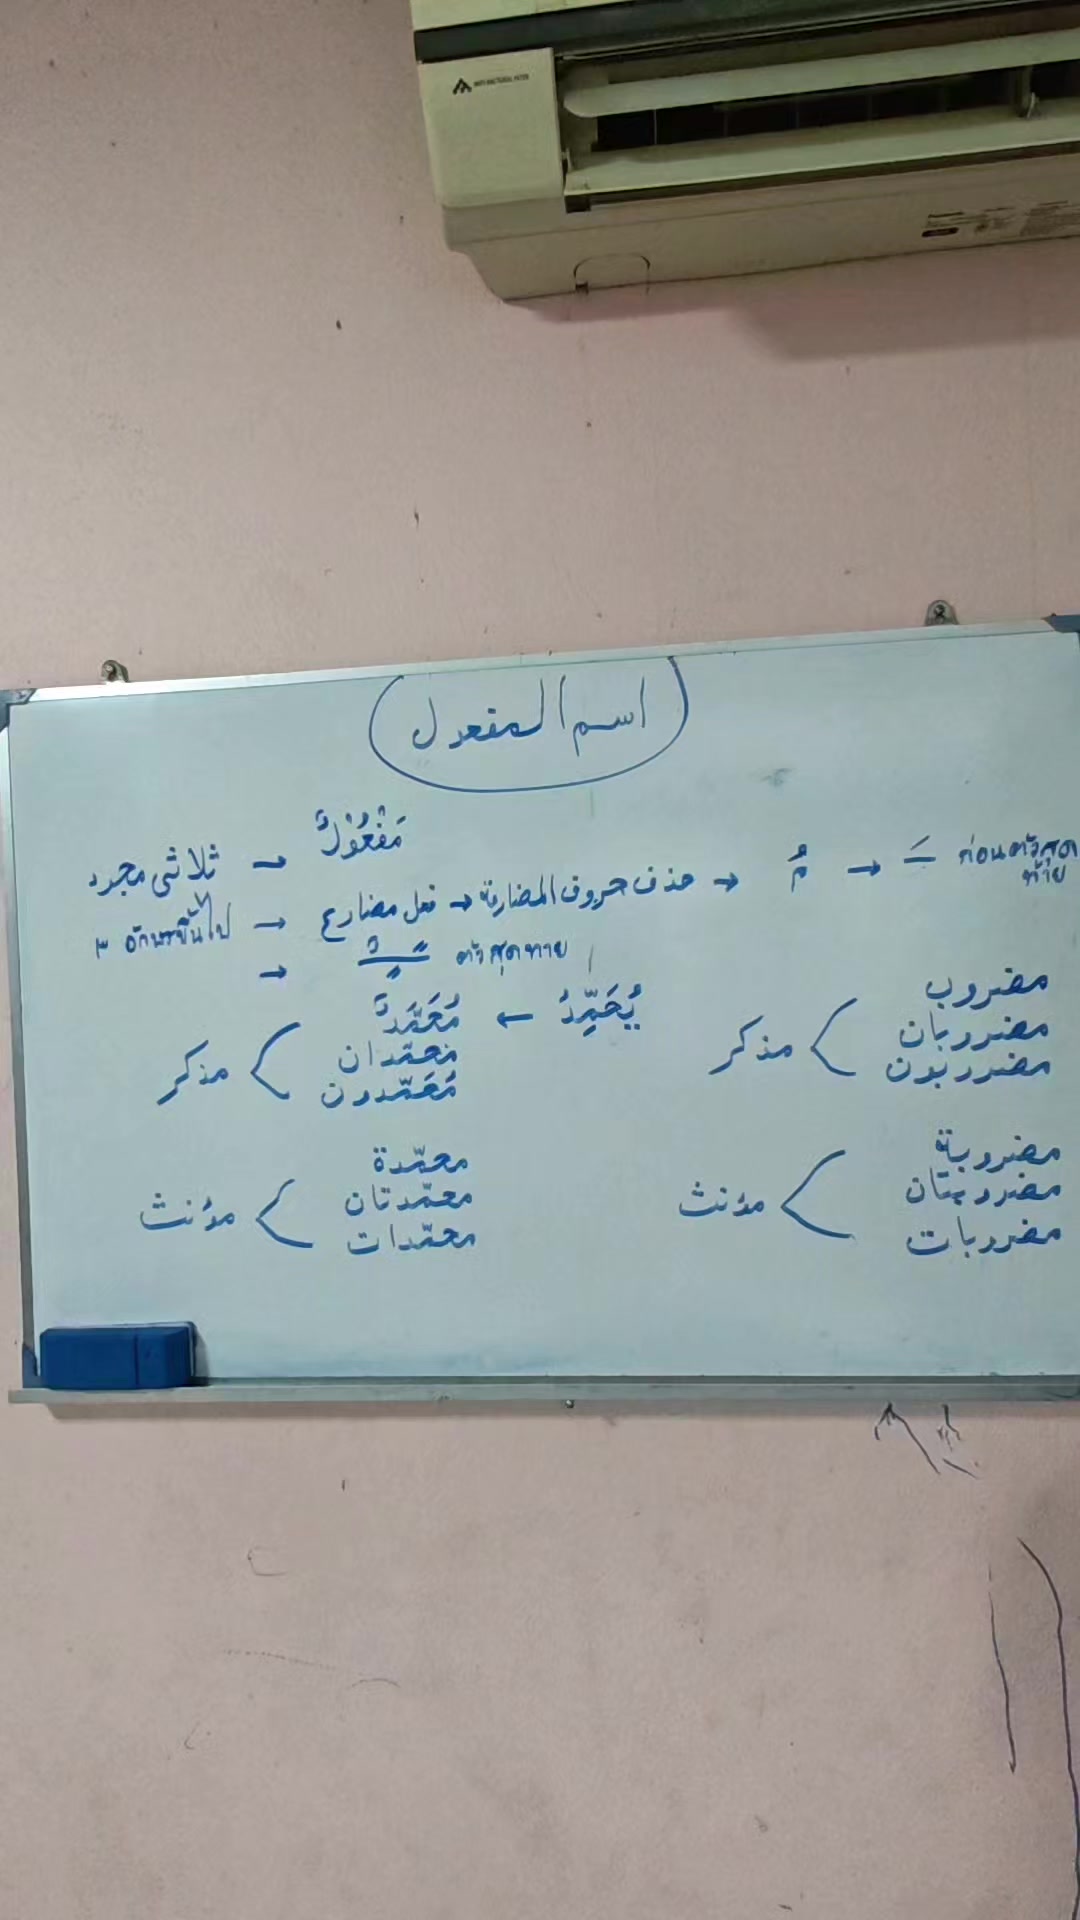 ANTI-BACTERIAL FILTER
اسم المفعول
ثلاثى مجرد → مَفْعُوْلٌ
อักษรขึ้นไป → فعل مضارع → حذف حروف المضارعة → مُ → ـَ ก่อนตัวสุดท้าย
→ ـٌـًـٍ ตัวสุดท้าย
يُحَمِّدُ ← مُحَمَّدٌ
محمّدان
مُحَمَّدون
مذكر
محمّدة
محمّدتان
محمّدات
مؤنث
مضروب
مضروبان
مضروبون
مذكر
مضروبة
مضروبتان
مضروبات
مؤنث